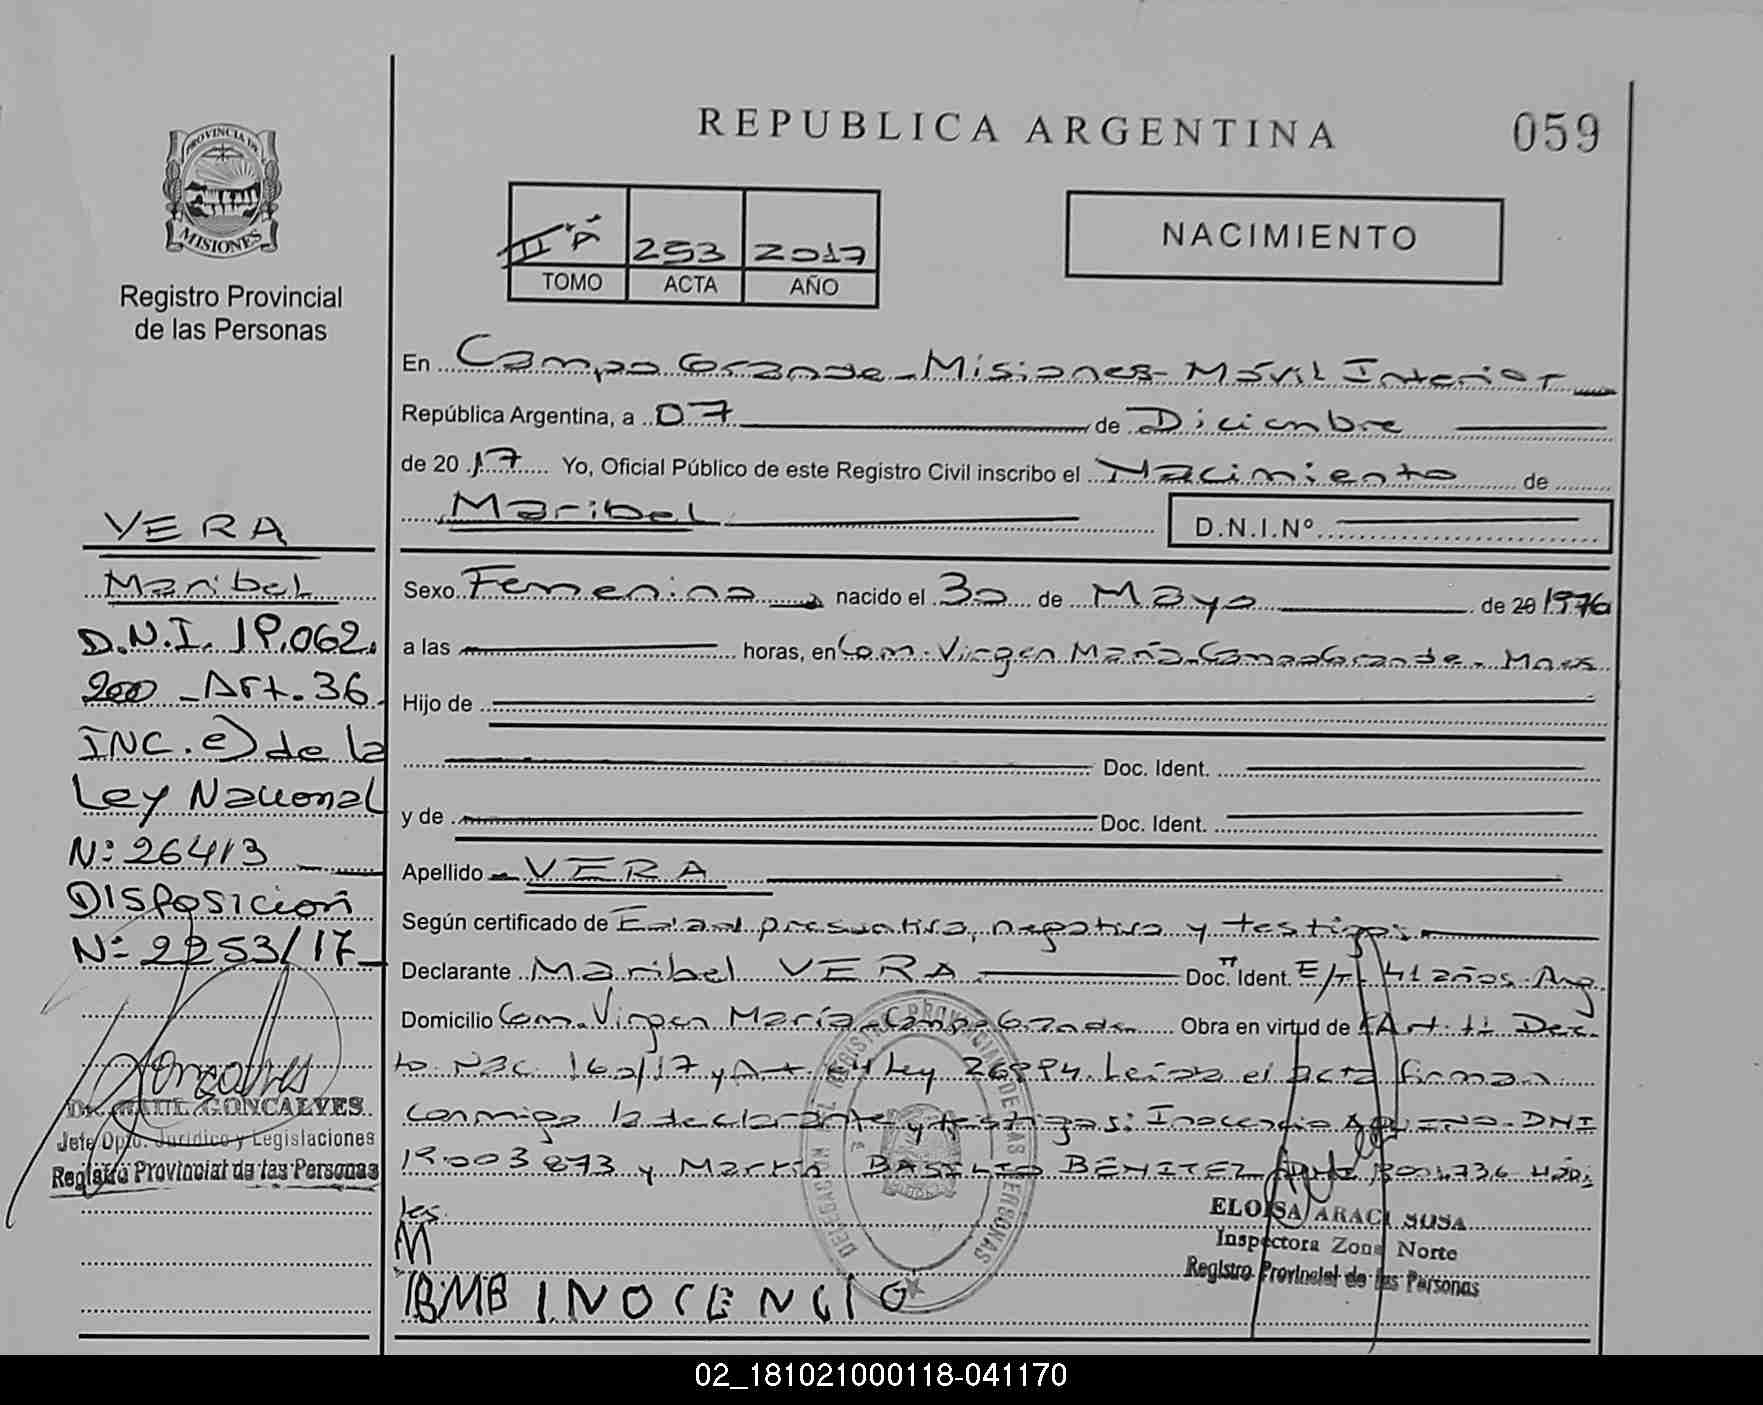 REPUBLICA ARGENTINA
059
PROVINCIA DE
MISIONES
Registro Provincial
de las Personas
II "A" 253 2017
TOMO ACTA AÑO
NACIMIENTO
En Campo Grande - Misiones - Móvil Interior
República Argentina, a 07 de Diciembre
de 2017 Yo, Oficial Público de este Registro Civil inscribo el Nacimiento de
Maribel D.N.I.Nº
Sexo Femenino nacido el 30 de Mayo de 20 1976
a las horas, en Com. Virgen María - Campo Grande - Mnes
Hijo de
Doc. Ident.
y de Doc. Ident.
Apellido VERA
Según certificado de Edad presuntiva, negativa y testigos
Declarante Maribel VERA Doc. Ident. E/T 41 años. Arg.
Domicilio Com. Virgen María - Campo Grande Obra en virtud de Art. 11 Decre
to Nac. 160/17 y Art. 64 Ley 26994. Leída el acta firman
conmigo la declarante y testigos: Inocencio DNI
19003873 y Martín BASILIO BENITEZ DNI
les.
M
BMB INOCENCIO
VERA
Maribel
D.N.I. 19.062.
200 - Art. 36
INC. e) de la
Ley Nacional
N: 26413
DISPOSICION
N: 2253/17
Goncalves
DR. RAUL GONCALVES
Jefe Dpto. Jurídico y Legislaciones
Registro Provincial de las Personas
REGISTRO PROVINCIAL DE LAS PERSONAS
ELOISA ARACI SUSA
Inspectora Zona Norte
Registro Provincial de las Personas
02_181021000118-041170